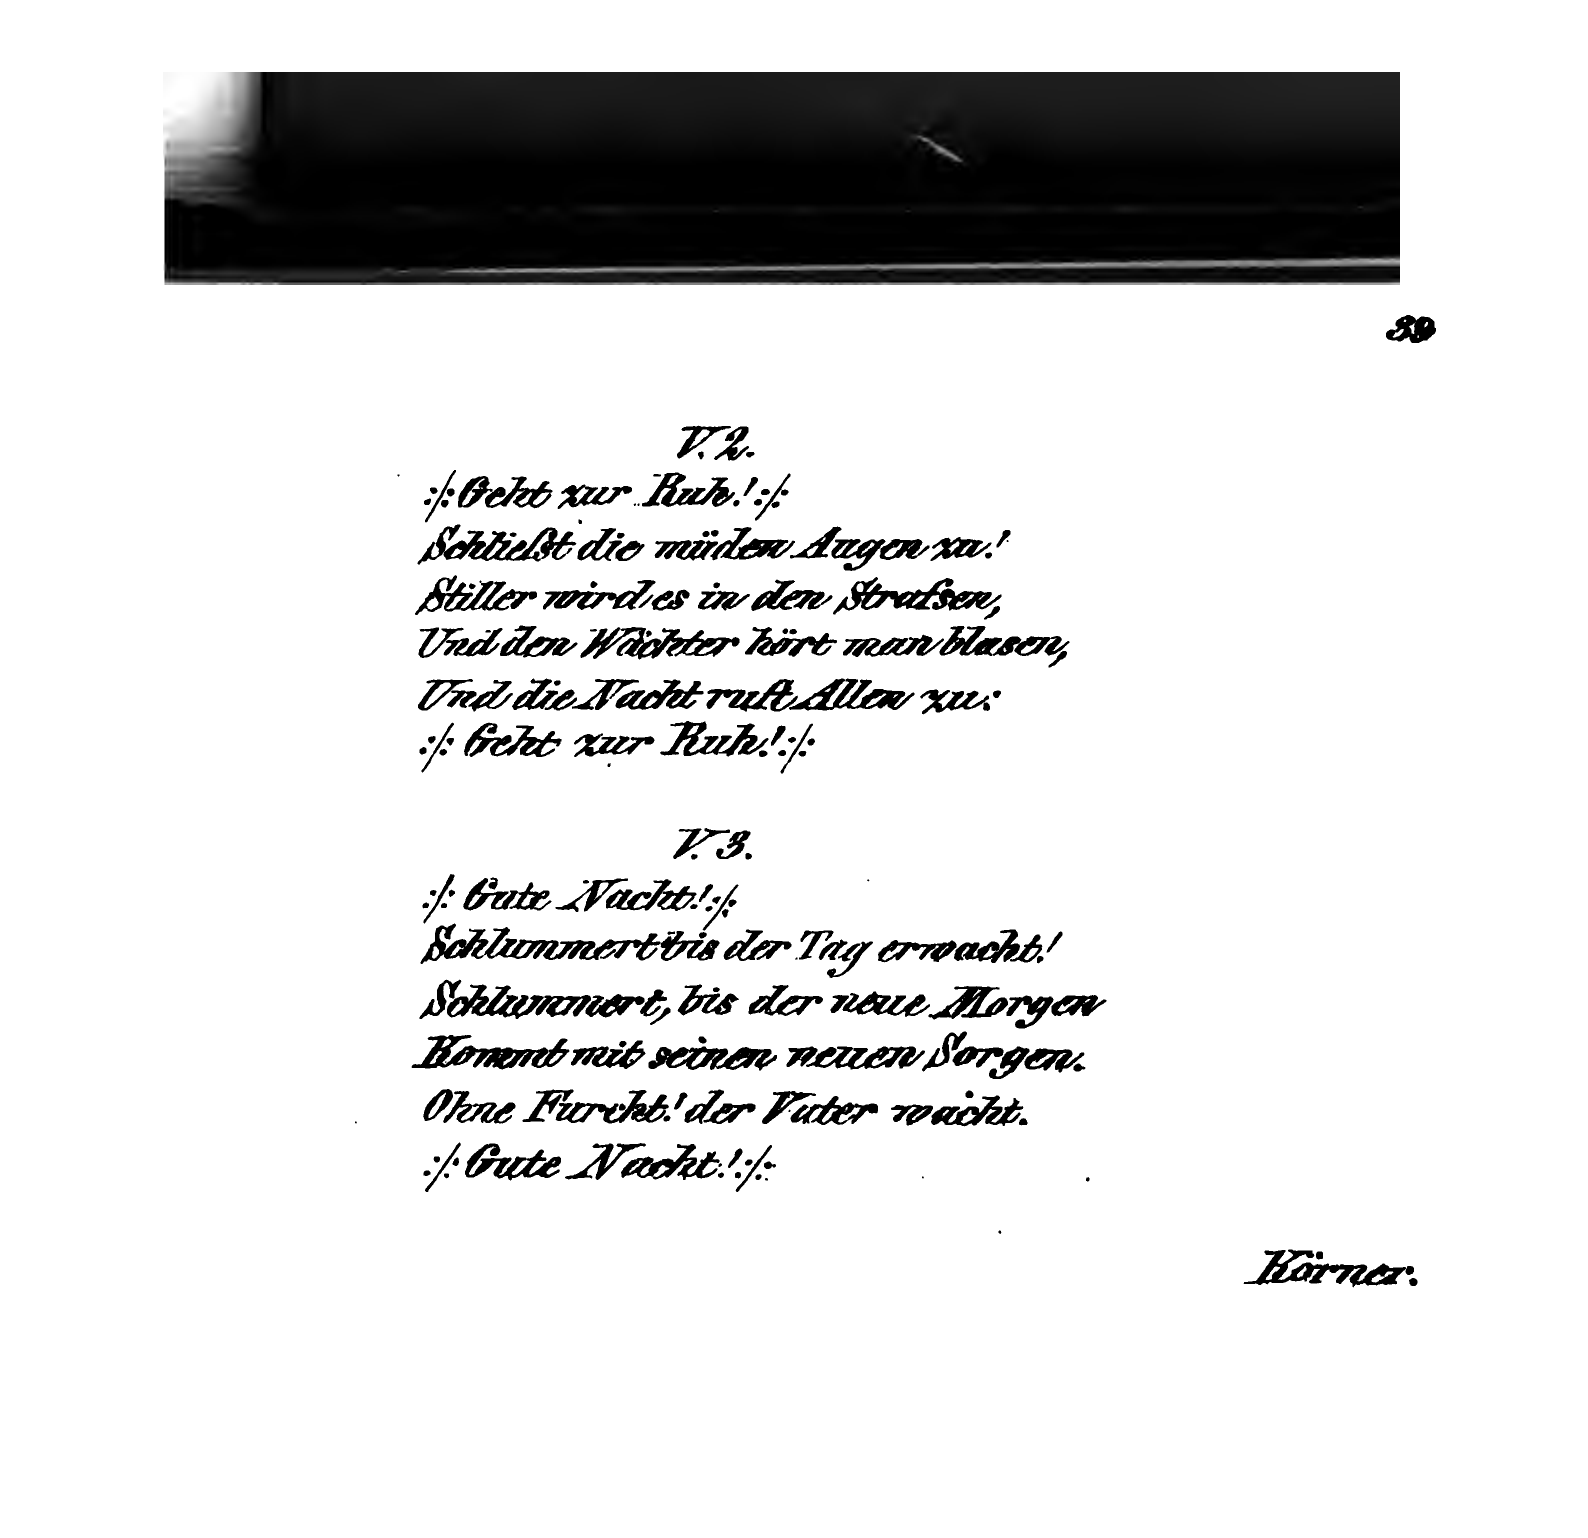 39
V. 2.
:/: Geht zur Ruh! :/:
Schließt die müden Augen zu!
Stiller wird es in den Strafsen,
Und den Wächter hört man blasen,
Und die Nacht ruft Allen zu:
:/: Geht zur Ruh! :/:
V. 3.
:/: Gute Nacht! :/:
Schlummert bis der Tag erwacht!
Schlummert, bis der neue Morgen
Kommt mit seinen neuen Sorgen.
Ohne Furcht! der Vater wacht.
:/: Gute Nacht! :/:
Körner.